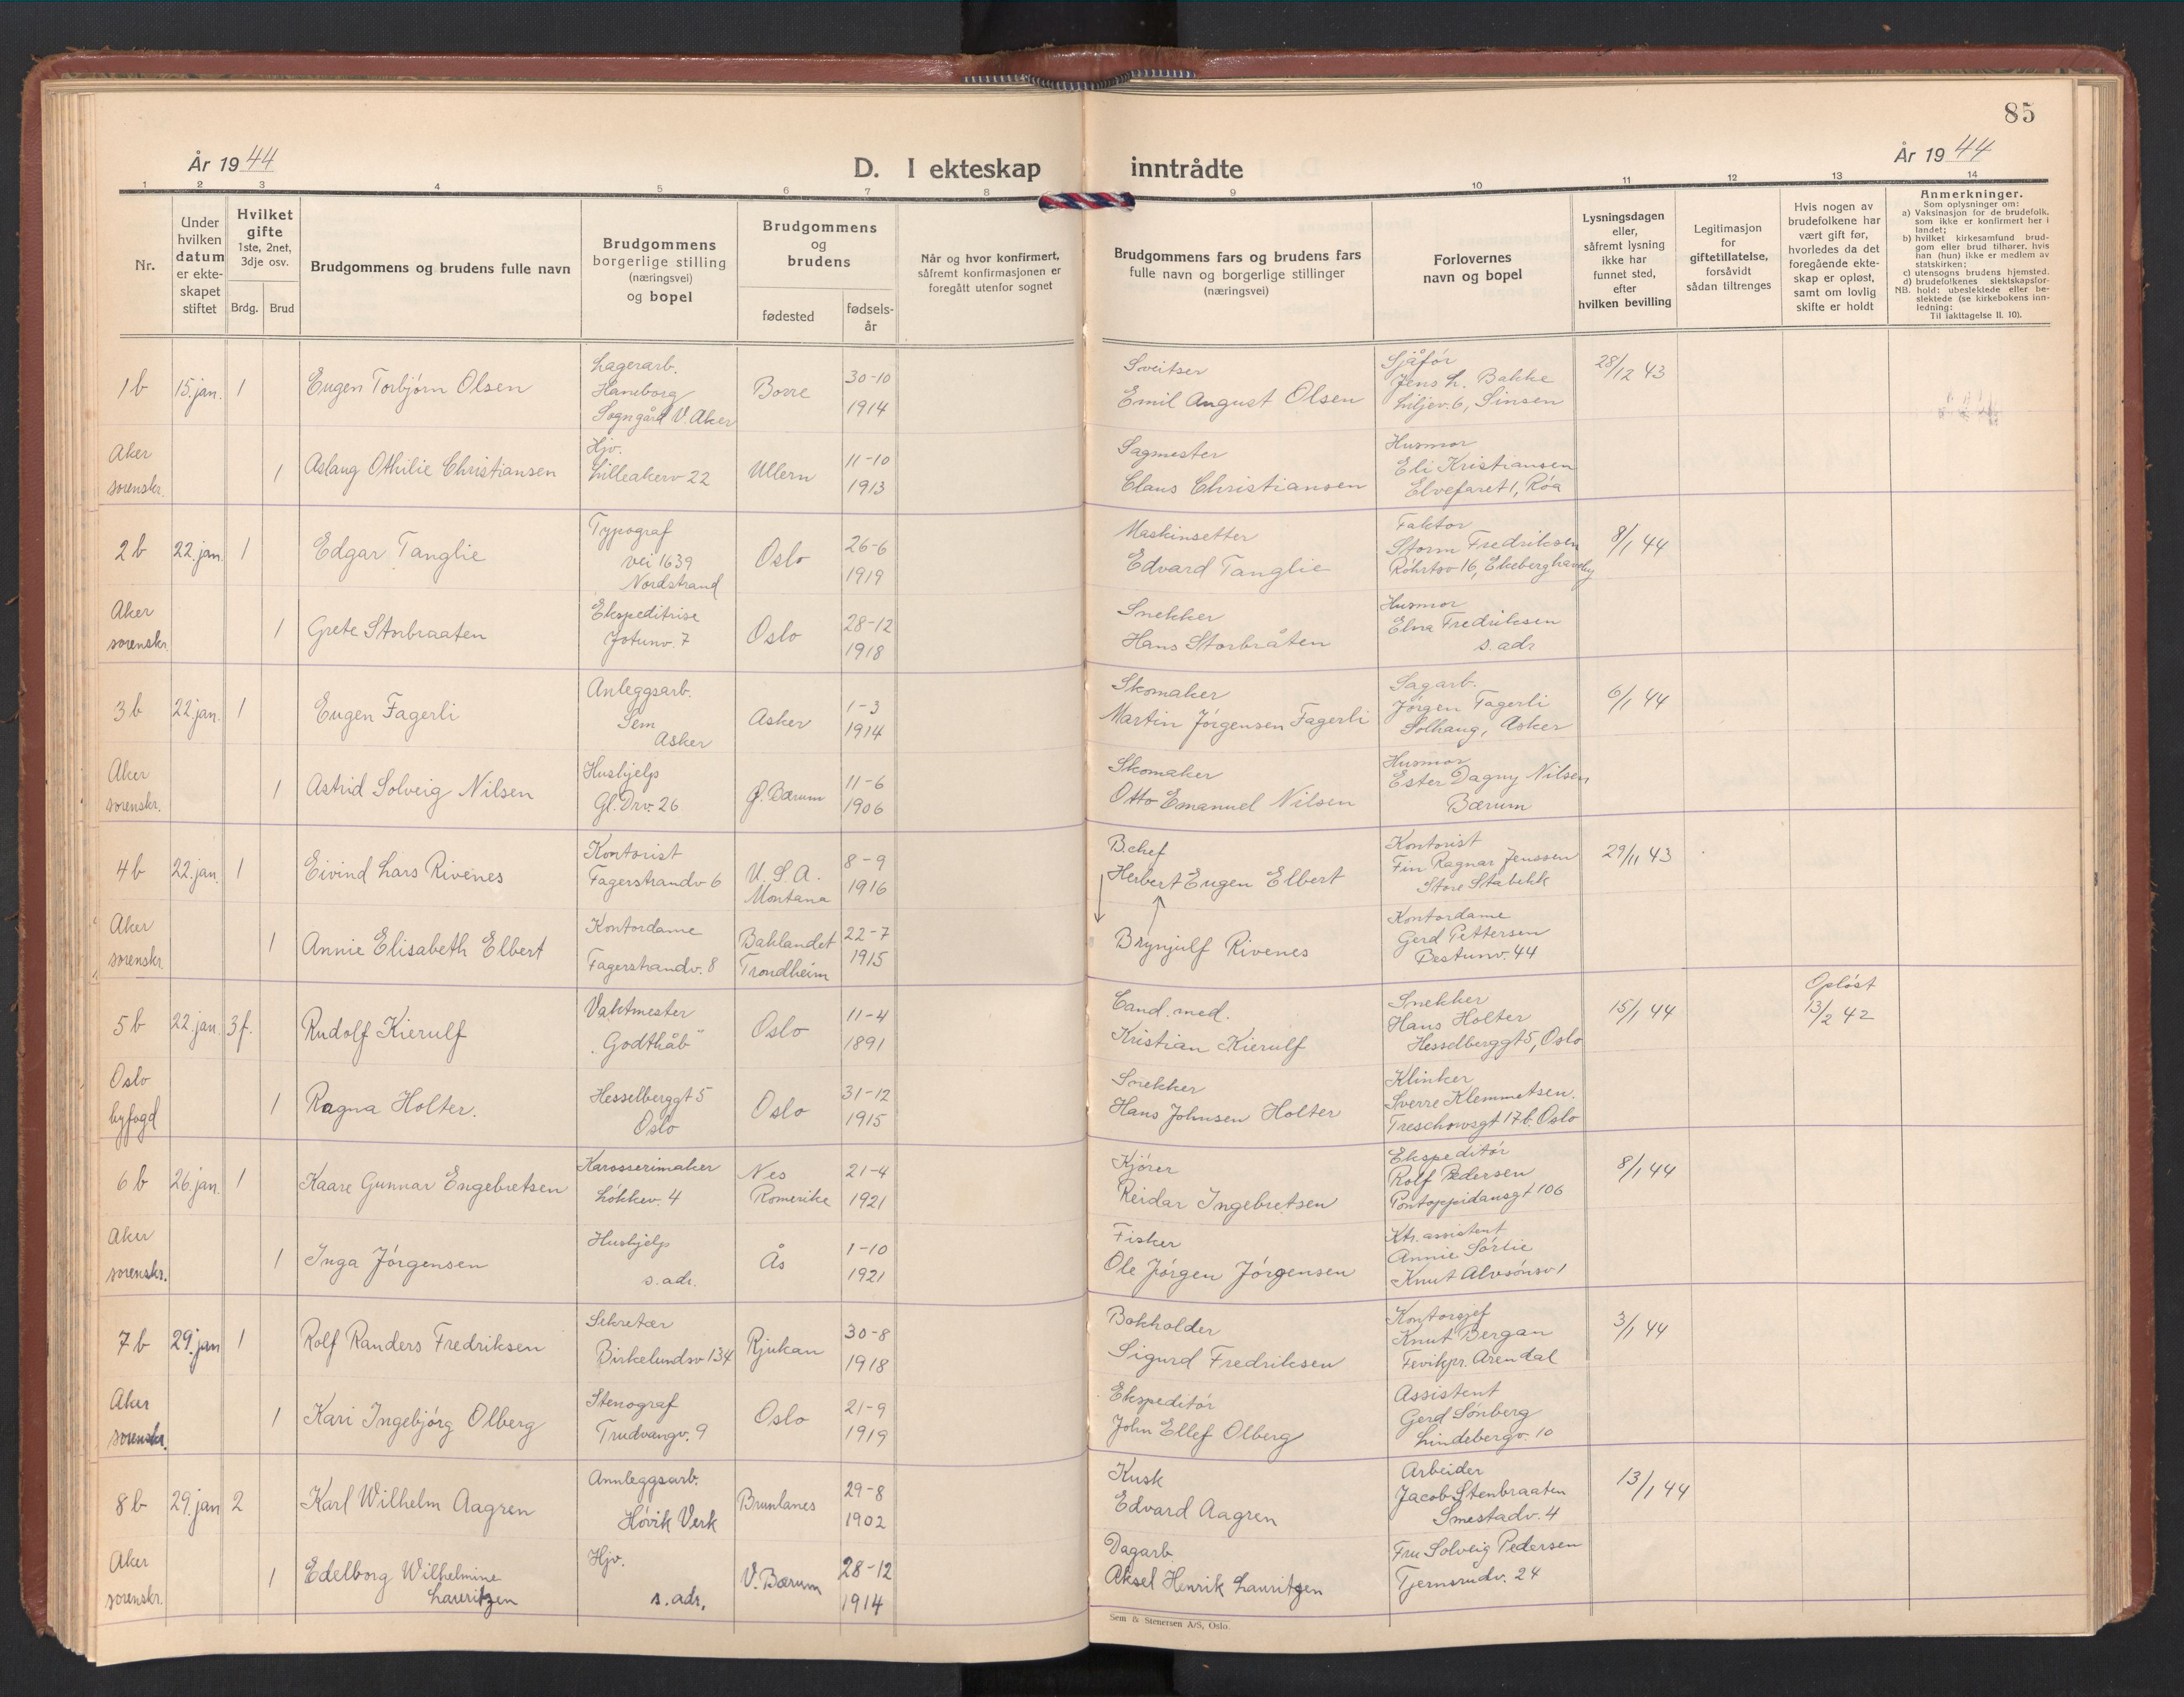 85
År 1944
D. I ekteskap inntrådte
År 1944
1 2 3 4 5 6 7 8 9 10 11 12 13 14
Nr.
Under hvilken datum er ekteskapet stiftet
Hvilket gifte 1ste, 2net, 3dje osv.
Brdg. Brud
Brudgommens og brudens fulle navn
Brudgommens borgerlige stilling (næringsvei) og bopel
Brudgommens og brudens
fødested
fødsels-år
Når og hvor konfirmert, såfremt konfirmasjonen er foregått utenfor sognet
Brudgommens fars og brudens fars fulle navn og borgerlige stillinger (næringsvei)
Forlovernes navn og bopel
Lysningsdagen eller, såfremt lysning ikke har funnet sted, efter hvilken bevilling
Legitimasjon for giftetillatelse, forsåvidt sådan tiltrenges
Hvis nogen av brudefolkene har vært gift før, hvorledes da det foregående ekteskap er opløst, samt om lovlig skifte er holdt
Anmerkninger.
Som oplysninger om:
a) Vaksinasjon for de brudefolk. som ikke er konfirmert her i landet;
b) hvilket kirkesamfund brudgom eller brud tilhører, hvis han (hun) ikke er medlem av statskirken;
c) utensogns brudens hjemsted.
d) brudefolkenes slektskapsforhold: ubeslektede eller beslektede (se kirkebokens innledning:
NB.
Til iakttagelse II. 10).
1b 15. jan. 1 Eugen Torbjørn Olsen
Lagerarb.
Haneborg
Sogngård V. Aker
Borre
30-10
1914
Sveitser
Emil August Olsen
Sjåfør
Jens L. Bakke
Liljev. 6, Sinsen
28/12 43
Aker
sorenskr.
1 Aslaug Othilie Christiansen
Hjv.
Lilleakerv 22
Ullern
11-10
1913
Sagmester
Claus Christiansen
Husmor
Eli Kristiansen
Elvefaret 1, Røa
2b 22. jan. 1 Edgar Tanglie
Typograf
vei 1639
Nordstrand
Oslo
26-6
1919
Maskinsetter
Edvard Tanglie
Faktor
Storm Fredriksen
16, Ekeberg haveby
8/1 44
Aker
sorenskr.
1 Grete Storbraaten
Ekspeditrise
Jotunv. 7
Oslo
28-12
1918
Snekker
Hans Storbråten
Husmor
Elna Fredriksen
s. adr
3b 22. jan. 1 Eugen Fagerli
Anleggsarb.
Sem
Asker
Asker
1-3
1914
Skomaker
Martin Jørgensen Fagerli
Sagarb.
Jørgen Fagerli
Solhaug, Asker
6/1 44
Aker
sorenskr.
1 Astrid Solveig Nilsen
Hushjelp
Gl. Drv. 26
Ø. Bærum
11-6
1906
Skomaker
Otto Emanuel Nilsen
Husmor
Ester Dagny Nilsen
Bærum
4b 22. jan. 1 Eivind Lars Rivenes
Kontorist
Fagerstrandv 6
U.S.A.
Montana
8-9
1916
B.chef
Herbert Eugen Elbert
Kontorist
Fin Ragnar Jenssen
Store Stabekk
29/11 43
Aker
sorenskr
1 Annie Elisabeth Elbert
Kontordame
Fagerstrandv. 8
Baklandet
Trondheim
22-7
1915
Brynjulf Rivenes
Kontordame
Gerd Pettersen
Bestumv. 44
5b 22. jan. 3 f. Rudolf Kierulf
Vaktmester
„Godthåb"
Oslo
11-4
1891
Cand. med.
Kristian Kierulf
Snekker
Hans Holter
Hesselberggt 5, Oslo
15/1 44
Opløst
13/2 42
Oslo
byfogd
1 Ragna Holter.
Hesselberggt 5
Oslo
Oslo
31-12
1915
Snekker
Hans Johnsen Holter
Klinker
Sverre Klemmetsen.
Treschowsgt 17 b. Oslo
6b 26. jan. 1 Kaare Gunnar Engebretsen
Karosserimaker
Løkkev. 4
Nes
Romerike
21-4
1921
Kjører
Reidar Ingebretsen
Ekspeditør
Rolf Pedersen
Pontoppidansgt 106
8/1 44
Aker
sorenskr.
1 Inga Jørgensen
Hushjelp
s. adr.
Ås
1-10
1921
Fisker
Ole Jørgen Jørgensen
Ktr. assistent
Annie Sørlie
Knut Alvsønsv 1
7b 29. jan 1 Rolf Randers Fredriksen
Sekretær
Birkelundsv 134
Rjukan
30-8
1918
Bokholder
Sigurd Fredriksen
Kontorsjef
Knut Bergan
Fevikpr. Arendal
3/1 44
Aker
sorenskr.
1 Kari Ingebjørg Olberg
Stenograf
Trudvangv. 9
Oslo
21-9
1919
Ekspeditør
John Ellef Olberg
Assistent
Gerd Sønberg
Lindebergv. 10
8b 29. jan 2 Karl Wilhelm Aagren
Annleggsarb.
Høvik Verk
Brunlanes
29-8
1902
Kusk
Edvard Aagren
Arbeider
Jacob Stenbraaten
Smestadv. 4
13/1 44
Aker
sorenskr.
1 Edelborg Wilhelmine
Lauritzen
Hjv.
s. adr.
V. Bærum
28-12
1914
Dagarb
Aksel Henrik Lauritzen
Fru Solveig Pedersen
Tjernsrudv. 24
Sem & Stenersen A/S, Oslo.